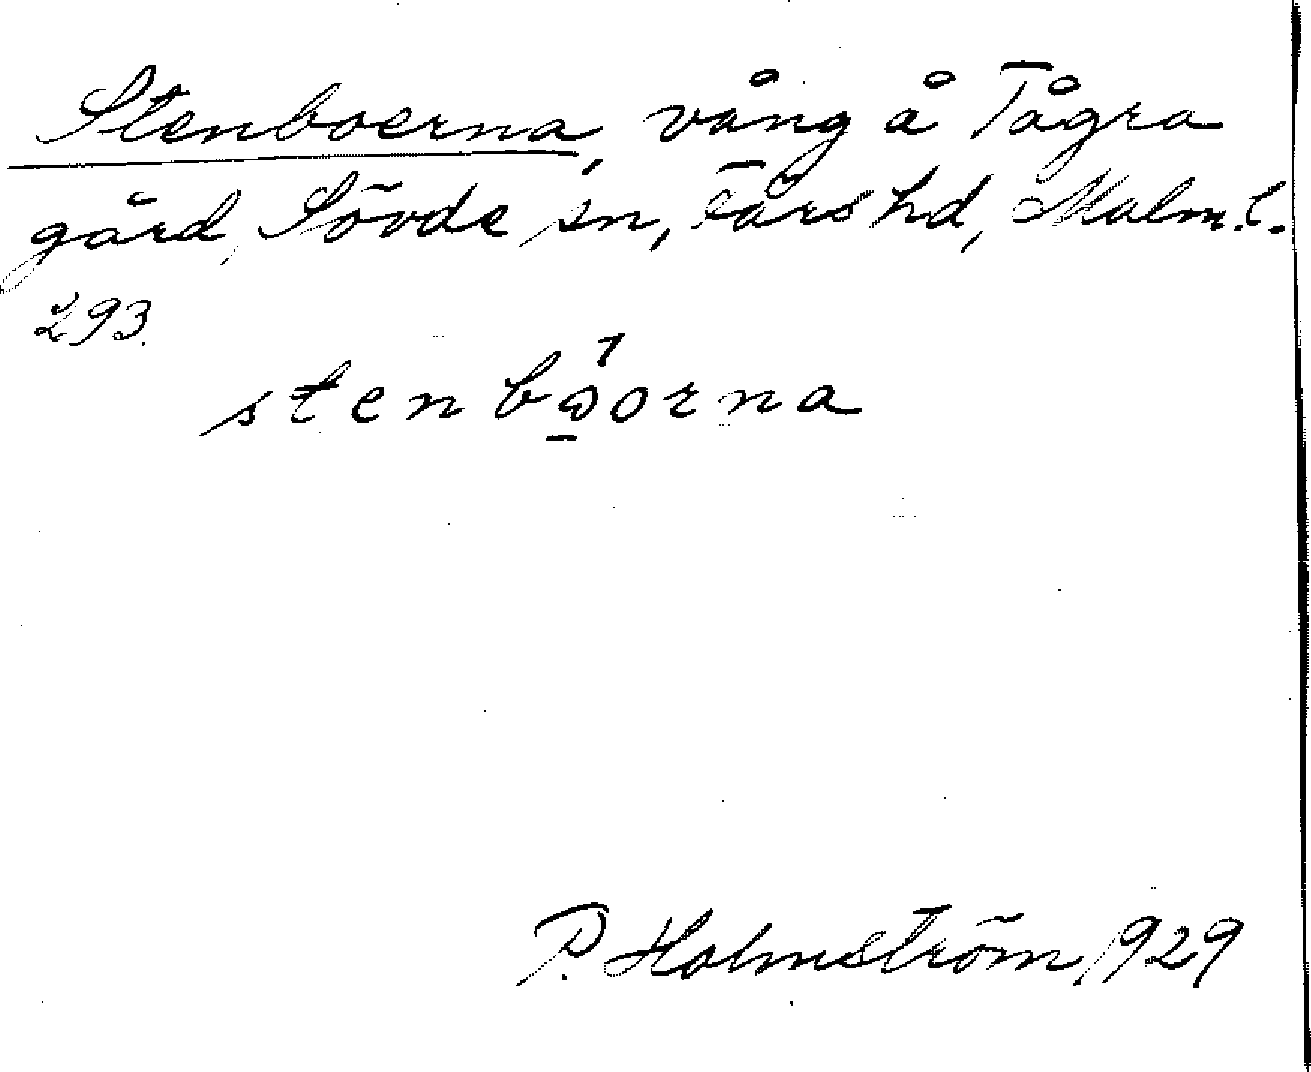 Stenboerna, vång å Tågra
gård, Sövde sn, Färs hd, Malm. l.
293.
P. Holmström, 1929